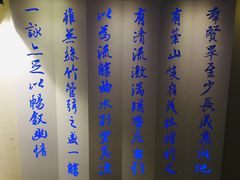 群賢畢至少長咸集此地
有崇山峻領茂林脩竹又
有清流激湍暎帶左右引
以為流觴曲水列坐其次
雖無絲竹管弦之盛一觴
一詠亦足以暢敘幽情